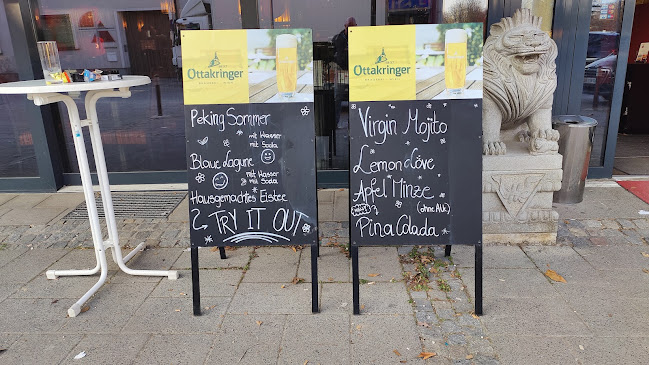 Ottakringer
Peking Sommer
mit Wasser
mit Soda
Blaue Lagune
mit Wasser
mit Soda
Hausgemachtes Eistee
TRY IT OUT
Ottakringer
Virgin Mojito
Lemon Love
Apfel Minze
(ohne Alk.)
Pina Colada